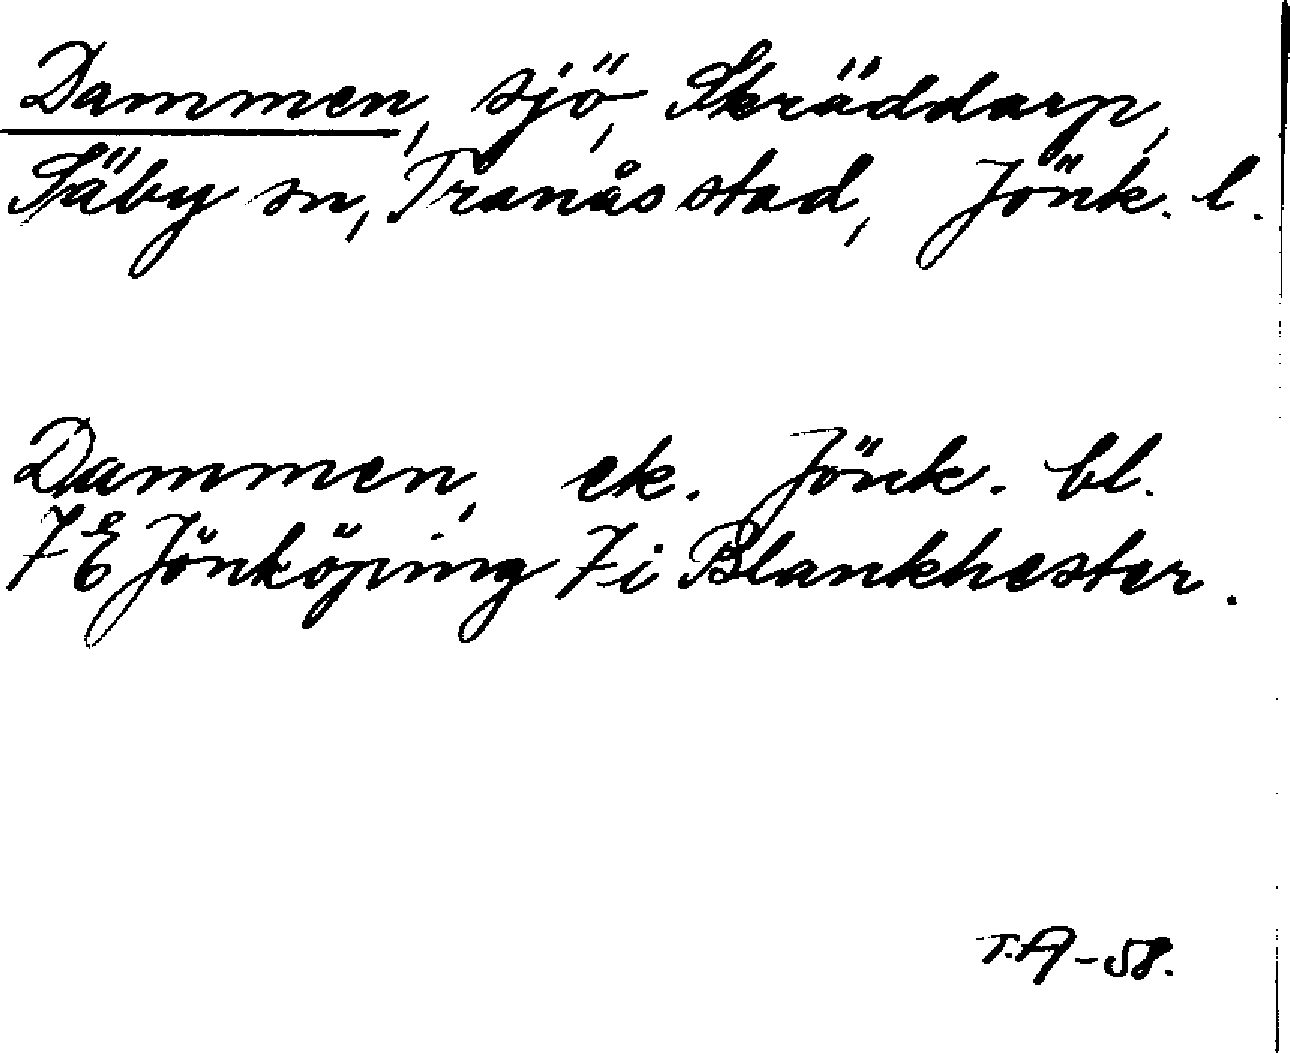 Dammen, sjö, Skräddarp,
Säby sn, Tranås stad, Jönk. l.
Dammen, ek. Jönk. bl.
7E Jönköping 7i Blankhester.
T.A-58.